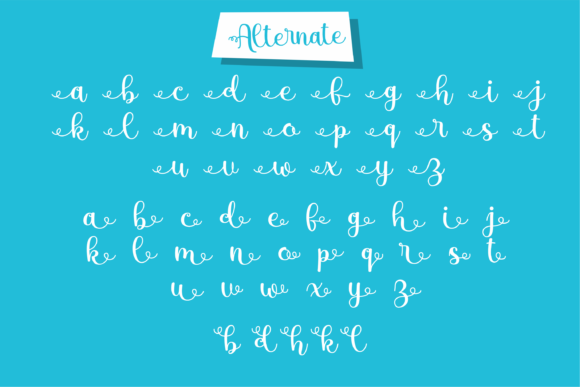 Alternate
a b c d e f g h i j
k l m n o p q r s t
u v w x y z
a b c d e f g h i j
k l m n o p q r s t
u v w x y z
b d h k l